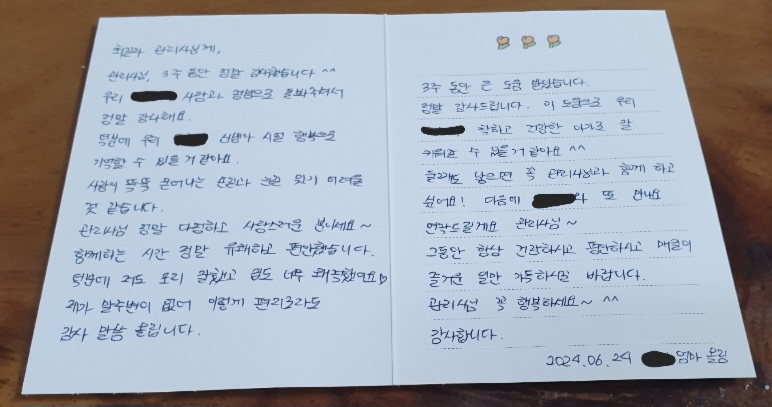 최고의 관리사님께,
관리사님, 3주 동안 정말 감사했습니다 ^^
우리 사랑과 정성으로 돌봐주셔서
정말 감사해요.
덕분에 우리 시절 행복으로
기억할 수 있을 거 같아요.
사랑이 뚝뚝 묻어나는 손길과 눈은 잊기 어려울
것 같습니다.
관리사님 정말 다정하고 사랑스러운 분이세요~
함께하는 시간 정말 유쾌하고 편안했습니다.
덕분에 저도 조리 잘했고 집도 너무 쾌적했어요♡
제가 말주변이 없어 이렇게 편지로라도
감사 말씀 올립니다.
3주 동안 큰 도움 받았습니다.
정말 감사드립니다. 이 도움으로 우리
착하고 건강한 아가로 잘
키워볼 수 있을 거 같아요 ^^
둘째도 낳으면 꼭 관리사님과 함께 하고
싶어요! 다음에 와 또 만나요
연락드릴게요 관리사님~
그동안 항상 건강하시고 평안하시고 매일이
즐거운 일만 가득하시길 바랍니다.
관리사님 꼭 행복하세요~ ^^
감사합니다.
2024.06.24 엄마 올림